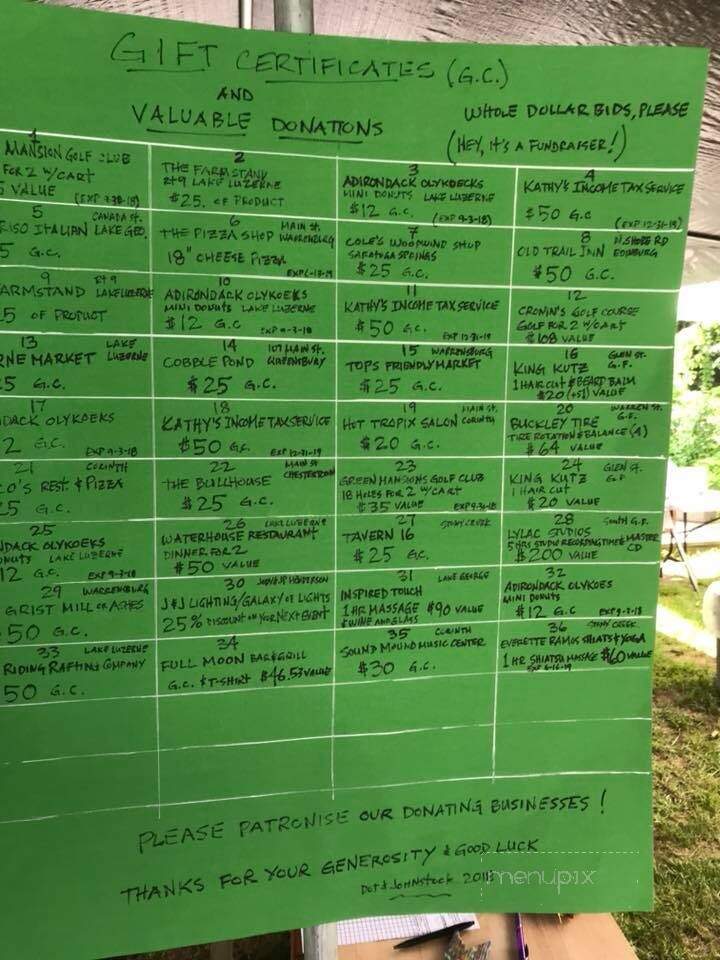 GIFT CERTIFICATES (G.C.)
AND
VALUABLE DONATIONS
WHOLE DOLLAR BIDS, PLEASE
(HEY, IT'S A FUNDRAISER!)
1
MANSION GOLF CLUB
FOR 2 W/CART
5 VALUE
2
THE FARMSTAND
RT 9 LAKE LUZERNE
$25. OF PRODUCT
3
ADIRONDACK OLYKOECKS
MINI DONUTS LAKE LUZERNE
$12 G.C. (EXP 9-3-18)
4
KATHY'S INCOME TAX SERVICE
$50 G.C (EXP 12-31-19)
5 CANADA ST.
RISO ITALIAN LAKE GEO.
5 G.C.
6 MAIN ST.
THE PIZZA SHOP WARRENSBURG
18" CHEESE PIZZA
7
COLE'S WOODWIND SHOP
SARATOGA SPRINGS
$25 G.C.
8 N. SHORE RD
OLD TRAIL INN EDINBURG
$50 G.C.
9 RT 9
ARMSTAND LAKE LUZERNE
5 OF PRODUCT
10
ADIRONDACK OLYKOEKS
MINI DONUTS LAKE LUZERNE
$12 G.C EXP 9-3-18
11
KATHY'S INCOME TAX SERVICE
$50 G.C. EXP 12-31-19
12
CRONIN'S GOLF COURSE
GOLF FOR 2 W/CART
$108 VALUE
13 LAKE
NE MARKET LUZERNE
5 G.C.
14 107 MAIN ST.
COBBLE POND QUEENSBURY
$25 G.C.
15 WARRENSBURG
TOPS FRIENDLY MARKET
$25 G.C.
16 GLEN ST.
KING KUTZ G.F.
1 HAIRCUT & BEARD BALM
$20 (+$1) VALUE
17
DACK OLYKOEKS
2 G.C. EXP 9-3-18
18
KATHY'S INCOME TAX SERVICE
$50 G.C. EXP 12-31-19
19 MAIN ST.
HOT TROPIX SALON CORINTH
$20 G.C.
20 WARREN ST.
BUCKLEY TIRE G.F.
TIRE ROTATION & BALANCE (4)
$64 VALUE
21 CORINTH
O'S REST. & PIZZA
5 G.C.
22 MAIN ST
THE BULLHOUSE CHESTERTOWN
$25 G.C.
23
GREEN MANSIONS GOLF CLUB
18 HOLES FOR 2 W/CART
$35 VALUE
24 GLEN ST.
KING KUTZ G.F
1 HAIR CUT
$20 VALUE
25
DACK OLYKOEKS
NUTS LAKE LUZERNE
12 G.C. EXP 9-3-18
26 LAKE LUZERNE
WATERHOUSE RESTAURANT
DINNER FOR 2
$50 VALUE
27 STONY CREEK
TAVERN 16
$25 G.C.
28 SOUTH G.F.
LYLAC STUDIOS
5 HRS STUDIO RECORDING TIME & MASTER
CD
$200 VALUE
29 WARRENSBURG
GRIST MILL OR ASHES
50 G.C.
30 HENDERSON
J & J LIGHTING/GALAXY OF LIGHTS
25% DISCOUNT ON YOUR NEXT EVENT
31 LAKE GEORGE
INSPIRED TOUCH
1 HR MASSAGE $90 VALUE
& WINE AND GLASS
32
ADIRONDACK OLYKOES
MINI DONUTS
$12 G.C EXP 9-3-18
33 LAKE LUZERNE
RIDING RAFTING COMPANY
50 G.C.
34
FULL MOON BAR & GRILL
G.C. & T-SHIRT $46.53 VALUE
35 CORINTH
SOUND MOUND MUSIC CENTER
$30 G.C.
36 STONY CREEK
EVERETTE RAMOS SHIATSU & YOGA
1 HR SHIATSU MASSAGE $60 VALUE
PLEASE PATRONISE OUR DONATING BUSINESSES!
THANKS FOR YOUR GENEROSITY & GOOD LUCK
menupix